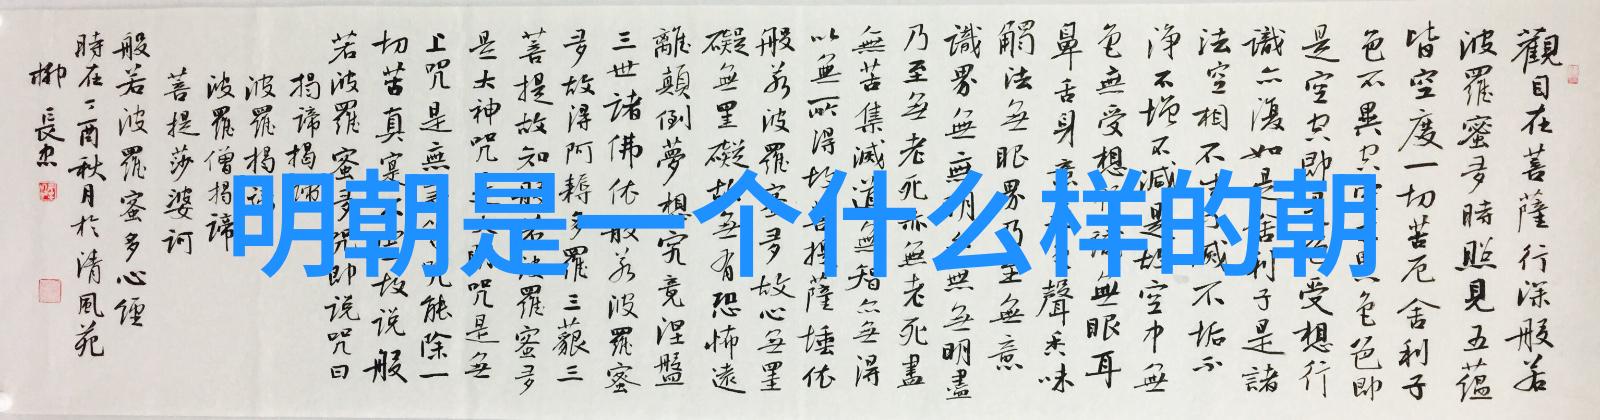 明朝是一个什么样的朝
觀自在菩薩行深般若
波羅蜜多時照見五蘊
皆空度一切苦厄舍利子
色不異空空不異色色即
是空空即是色受想行
識亦復如是舍利子是諸
法空相不生不滅不垢不
淨不增不減是故空中無
色無受想行識無眼耳
鼻舌身意無色聲香味
觸法無眼界乃至無意
識界無無明亦無無明盡
乃至無老死亦無老死盡
無苦集滅道無智亦無得
以無所得故菩提薩埵依
般若波羅蜜多故心無罣
礙無罣礙故無有恐怖遠
離顛倒夢想究竟涅盤
三世諸佛依般若波羅蜜
多故得阿耨多羅三藐三
菩提故知般若波羅蜜多
是大神咒是大明咒是無
上咒是無等等咒能除一
切苦真實不虛故说般
若波羅蜜多咒即说咒曰
揭諦揭諦
波羅揭諦
波羅僧揭諦
菩提莎婆訶
般若波羅蜜多心經
時在丁酉秋月於清風苑
柳長忠